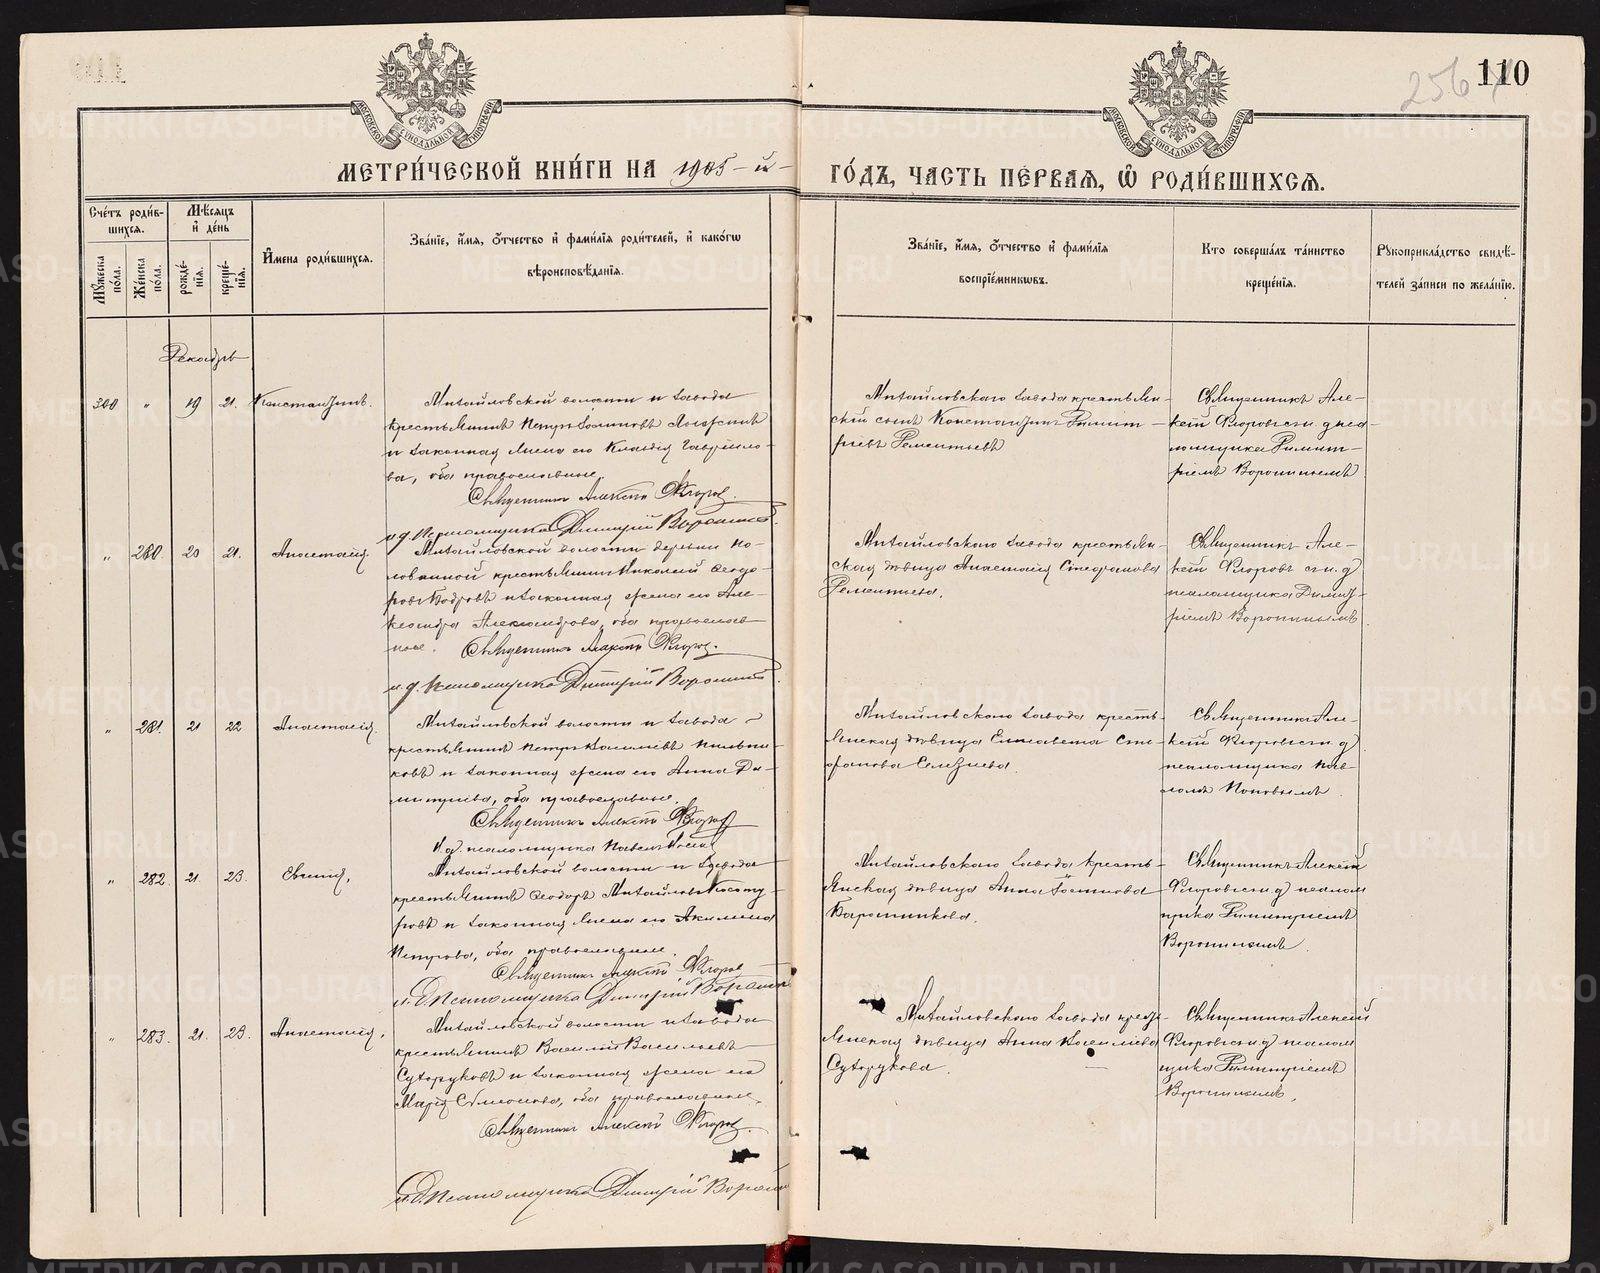 110
256
МОСКОВСКОЙ СѴНОДАЛЬНОЙ ТИПОГРАФІИ
МОСКОВСКОЙ СѴНОДАЛЬНОЙ ТИПОГРАФІИ
МЕТРИ́ЧЕСКОЙ КНИ́ГИ НА 1905-й- ГО́ДЪ, ЧАСТЬ ПЕ́РВАѦ, Ѽ РОДИ́ВШИХСѦ.
Сче́тъ роди́в-
шихсѧ.
Мꙋ́жеска по́ла.
Же́нска по́ла.
Мѣ́сѧцъ и҆ де́нь
рожде́-
нїѧ.
креще́-
нїѧ.
И҆мена̀ роди́вшихсѧ.
Зва́нїе, и҆́мѧ, ѻ҆́тчество и҆ фами́лїѧ роди́телей, и҆ како́гѡ
вѣроисповѣ́данїѧ.
Зва́нїе, и҆́мѧ, ѻ҆́тчество и҆ фами́лїѧ
воспрїе́мникѡвъ.
Кто соверша́лъ та́инство
креще́нїѧ.
Рꙋкоприкла́дство свидѣ́-
телей за́писи по жела́нїю.
Декабрь
300 " 19 21. Константинъ.
Михайловской волости и завода
крестьянинъ Петръ
и законная жена его Клавдія Гаврило-
ва, оба православные.
Священникъ Алексѣй Флоровъ.
и.д. Псаломщика Дмитрій Воронинъ.
Михайловскаго завода крестьян-
скій сынъ Константинъ Димит-
ріевъ Дементьевъ
Священникъ Але-
ксѣй Флоровъ съ и. д. пса-
ломщика Димит-
ріемъ Воронинымъ
" 280. 20 21. Анастасія.
Михайловской волости деревни
крестьянинъ Николай Ѳеодо-
ровъ Бобровъ и законная жена его Але-
ксандра Александрова, оба православ-
ные. Священникъ Алексѣй Флоровъ.
и.д. псаломщика Дмитрій Воронинъ.
Михайловскаго завода крестьян-
ская дѣвица Анастасія Стефанова
Дементьева.
Священникъ Але-
ксѣй Флоровъ съ и. д
псаломщика Димит-
ріемъ Воронинымъ
" 281. 21 22 Анастасія.
Михайловской волости и завода
крестьянинъ Петръ Васильевъ
и законная жена его Анна Ди-
митріева, оба православные.
Священникъ Алексѣй Флоровъ
И.д. псаломщика Павелъ Поповъ
Михайловскаго завода кресть-
янская дѣвица Елизавета Сте-
фанова Елезнева.
Священникъ Але-
ксѣй Флоровъ съ и. д
псаломщика Пав-
ломъ Поповымъ
" 282. 21. 23. Евгенія.
Михайловской волости и завода
крестьянинъ Ѳеодоръ Михайловъ
и законная жена его Акилина
Петрова, оба православные.
Священникъ Алексѣй Флоровъ
и.д. Псаломщика Дмитрій Воронинъ
Михайловскаго завода кресть-
янская дѣвица Анна
Барышникова.
Священникъ Алексѣй
Флоровъ съ и. д псалом
щика Димитріемъ
Воронинымъ.
" 283. 21. 23. Анастасія.
Михайловской волости и завода
крестьянинъ Василій Васильевъ
Суторуковъ и законная жена его
Марія Симеонова, оба православные.
Священникъ Алексѣй Флоровъ.
и.д. Псаломщика Дмитрій Воронинъ
Михайловскаго завода крест-
янская дѣвица Анна Васильева
Суторукова.
Священникъ Алексѣй
Флоровъ съ и. д псалом
щика Димитріемъ
Воронинымъ.
METRIKI.GASO-URAL.RU